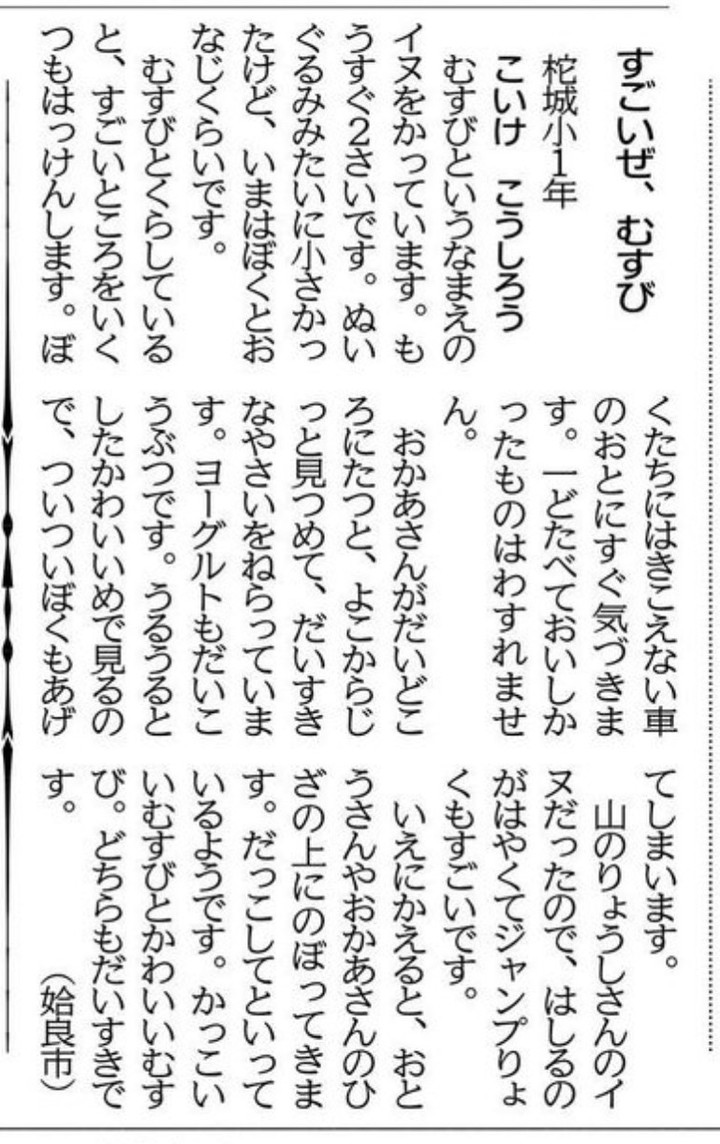 すごいぜ、むすび
柁城小1年
こいけ　こうしろう
　むすびというなまえの
イヌをかっています。も
うすぐ2さいです。ぬい
ぐるみみたいに小さかっ
たけど、いまはぼくとお
なじくらいです。
　むすびとくらしている
と、すごいところをいく
つもはっけんします。ぼ
くたちにはきこえない車
のおとにすぐ気づきま
す。一どたべておいしか
ったものはわすれませ
ん。
　おかあさんがだいどこ
ろにたつと、よこからじ
っと見つめて、だいすき
なやさいをねらっていま
す。ヨーグルトもだいこ
うぶつです。うるうると
したかわいいめで見るの
で、ついついぼくもあげ
てしまいます。
　山のりょうしさんのイ
ヌだったので、はしるの
がはやくてジャンプりょ
くもすごいです。
　いえにかえると、おと
うさんやおかあさんのひ
ざの上にのぼってきま
す。だっこしてといって
いるようです。かっこい
いむすびとかわいいむす
び。どちらもだいすきで
す。
（姶良市）